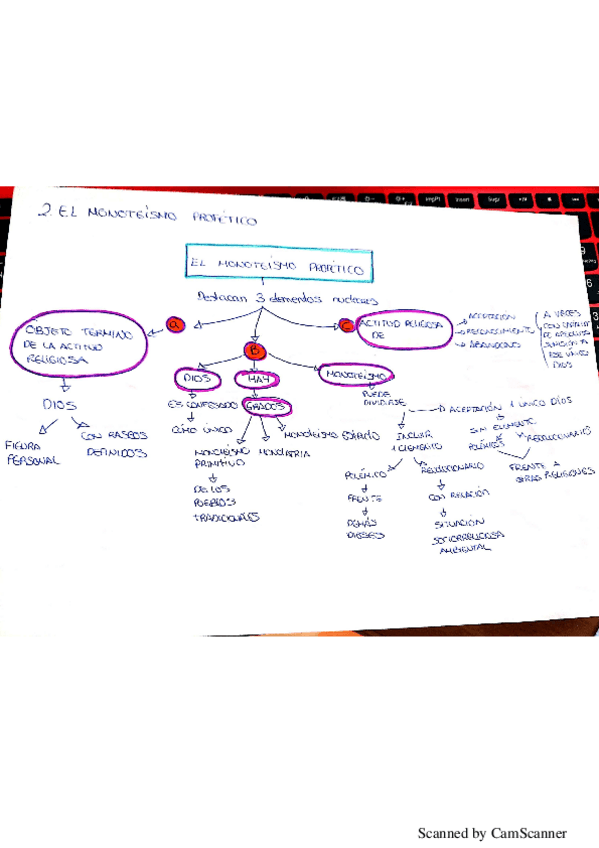 2. EL MONOTEÍSMO PROFÉTICO
EL MONOTEÍSMO PROFÉTICO
Destacan 3 elementos nucleares
a
OBJETO TERMINO
DE LA ACTITUD
RELIGIOSA
DIOS
FIGURA
PERSONAL
CON RASGOS
DEFINIDOS
B
DIOS
ES CONFESADO
CÓMO ÚNICO
HAY
GRADOS
MONOTEÍSMO
PRIMITIVO
DE LOS
PUEBLOS
TRADICIONALES
MONOLATRIA
MONOTEISMO ESTRICTO
MONOTEÍSMO
PUEDE
DIVIDIRSE
INCLUIR
1 ELEMENTO
POLÉMICO
FRENTE
DEMÁS
DIOSES
REVOLUCIONARIO
CON RELACIÓN
SITUACIÓN
SOCIORRELIGIOSA
AMBIENTAL
ACEPTACIÓN 1 ÚNICO DIOS
SIN ELEMENTO
POLÉMICO
REVOLUCIONARIO
FRENTE A
OTRAS RELIGIONES
C
ACTITUD RELIGIOSA
DE
ACEPTACIÓN
RECONOCIMIENTO
ABANDONO
A VECES
CON
DE
ESE ÚNICO
DIOS
Scanned by CamScanner